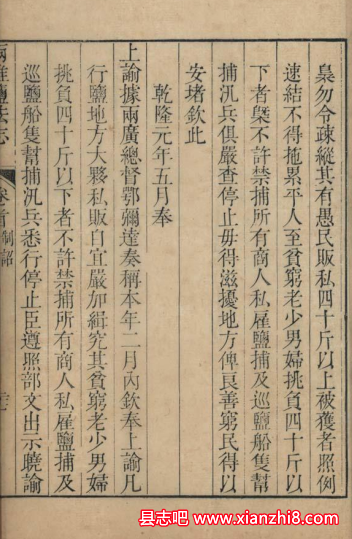 梟勿令疎縱其有愚民販私四十斤以上被獲者照例
速結不得拖累平人至貧窮老少男婦挑負四十斤以
下者槩不許禁捕所有商人私雇鹽捕及巡鹽船隻幫
捕汛兵俱嚴查停止毋得滋擾地方俾良善窮民得以
安堵欽此
乾隆元年五月奉
上諭據兩廣總督鄂彌達奏稱本年二月內欽奉上諭凡
行鹽地方大夥私販自宜嚴加緝究其貧窮老少男婦
挑負四十斤以下者不許禁捕所有商人私雇鹽捕及
巡鹽船隻幫捕汛兵悉行停止臣遵照部文出示曉諭
兩淮鹽法志
卷首 制詔
县志吧 www.xianzhi8.com